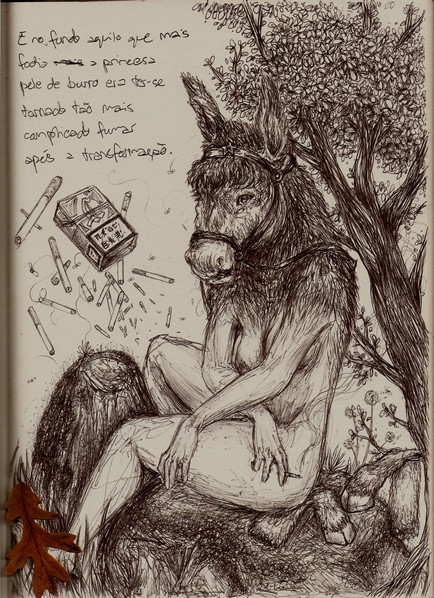 E no fundo aquilo que mais
fodia a princesa
pele de burro era ter-se
tornado tão mais
complicado fumar
após a transformação.